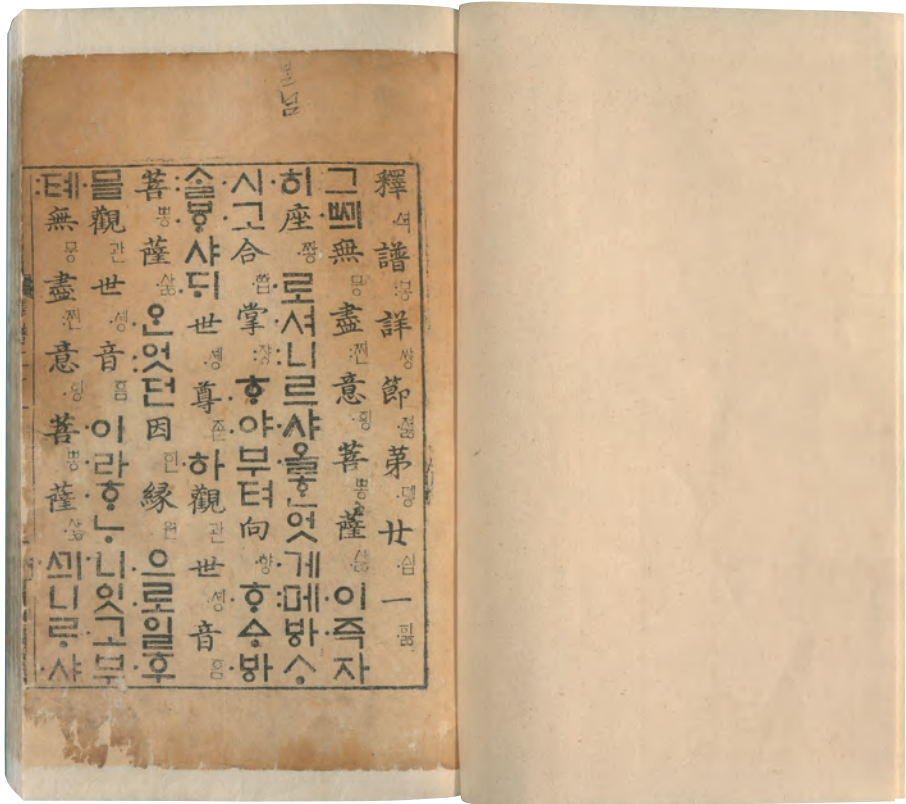 釋·셕譜:봉詳썅節·졇第·똉廿·ᅀᅵᆸ一·ᅙᅵᇙ
그·ᄢᅴ無뭉盡:찐意·ᅙᅴᆼ菩뽕薩·사ᇙ·이즉자
·히座·쫭·로·셔:니르·샤·올ᄒᆞᆫ엇·게:메바ᄉᆞ
·시고合·ᅘᅡᆸ掌:쟝·ᄒᆞ·야부텨向·향·ᄒᆞᅀᆞ·ᄫᅡ
:ᄉᆞᆯᄫᆞ·샤·ᄃᆡ世·솅尊존·하觀관世·솅音ᅙᅳᆷ
菩뽕薩·사ᇙ·ᄋᆞᆫ:엇던因ᅙᅵᆫ緣원·으·로일·후
·믈觀관世·솅音ᅙᅳᆷ·이·라·ᄒᆞ·ᄂᆞ·니잇·고부
:톄無뭉盡:찐意·ᅙᅴᆼ菩뽕薩·사ᇙ·ᄭᅴ니ᄅᆞ·샤